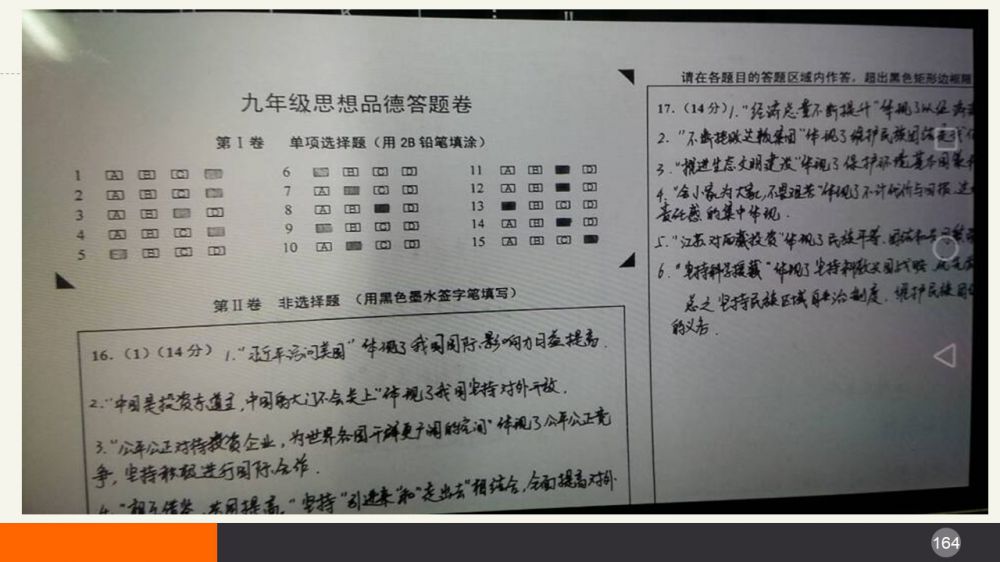 九年级思想品德答题卷
第Ⅰ卷 单项选择题（用2B铅笔填涂）
1 [A] [B] [C]
2 [A] [B] [C]
3 [A] [B] [D]
4 [A] [B] [C]
5 [B] [C] [D]
6 [B] [C] [D]
7 [A] [C] [D]
8 [A] [B] [D]
9 [B] [C] [D]
10 [A] [C] [D]
11 [A] [B] [D]
12 [A] [B] [D]
13 [B] [C] [D]
14 [A] [B] [D]
15 [A] [B] [C]
第Ⅱ卷 非选择题（用黑色墨水签字笔填写）
16.（1）（14分）1."习近平访问美国"体现了我国国际影响力日益提高.
2."中国是投资东道主,中国的大门不会关上"体现了我国坚持对外开放.
3."公平公正对待投资企业,为世界各国开辟更广阔的空间"体现了公平公正竞
争,坚持积极进行国际合作.
4."相互借鉴,共同提高,"坚持"引进来"和"走出去"相结合,全面提高对外
请在各题目的答题区域内作答，超出黑色矩形边框限
17.（14分）1."经济总量不断提升"体现了以经济
2."不断接收达赖集团"体现了维护民族团结是我
3."推进生态文明建设"体现了保护环境基本国策
4."舍小家为大家,不畏艰苦"体现了不计代价与回报,
责任感的集中体现.
5."江苏对西藏投资"体现了民族平等、团结和共同繁荣
6."坚持科学援藏"体现了坚持科教兴国战略,
总之坚持民族区域自治制度,维护民族团结
的义务.
164